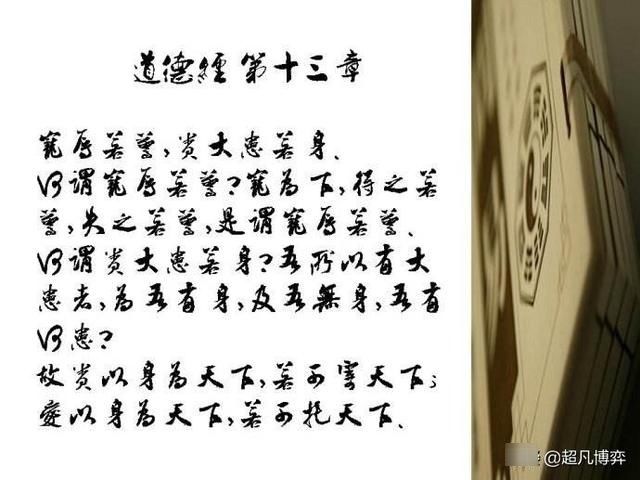 道德經 第十三章
寵辱若驚,貴大患若身、
何謂寵辱若驚?寵為下,得之若
驚,失之若驚,是謂寵辱若驚、
何謂貴大患若身?吾所以有大
患者,為吾有身,及吾無身,吾有
何患?
故貴以身為天下,若可雲天下;
愛以身為天下,若可托天下、
@超凡博弈